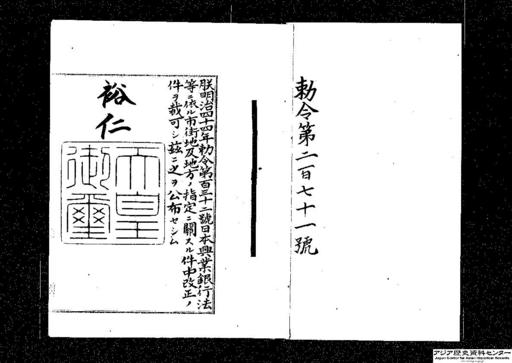 勅令第二百七十一號
朕明治四十四年勅令第百三十二號日本興業銀行法
等ニ依ル市街地及地方ノ指定ニ關スル件中改正ノ
件ヲ裁可シ茲ニ之ヲ公布セシム
裕仁
天皇
御璽
アジア歴史資料センター
Japan Center for Asian Historical Records